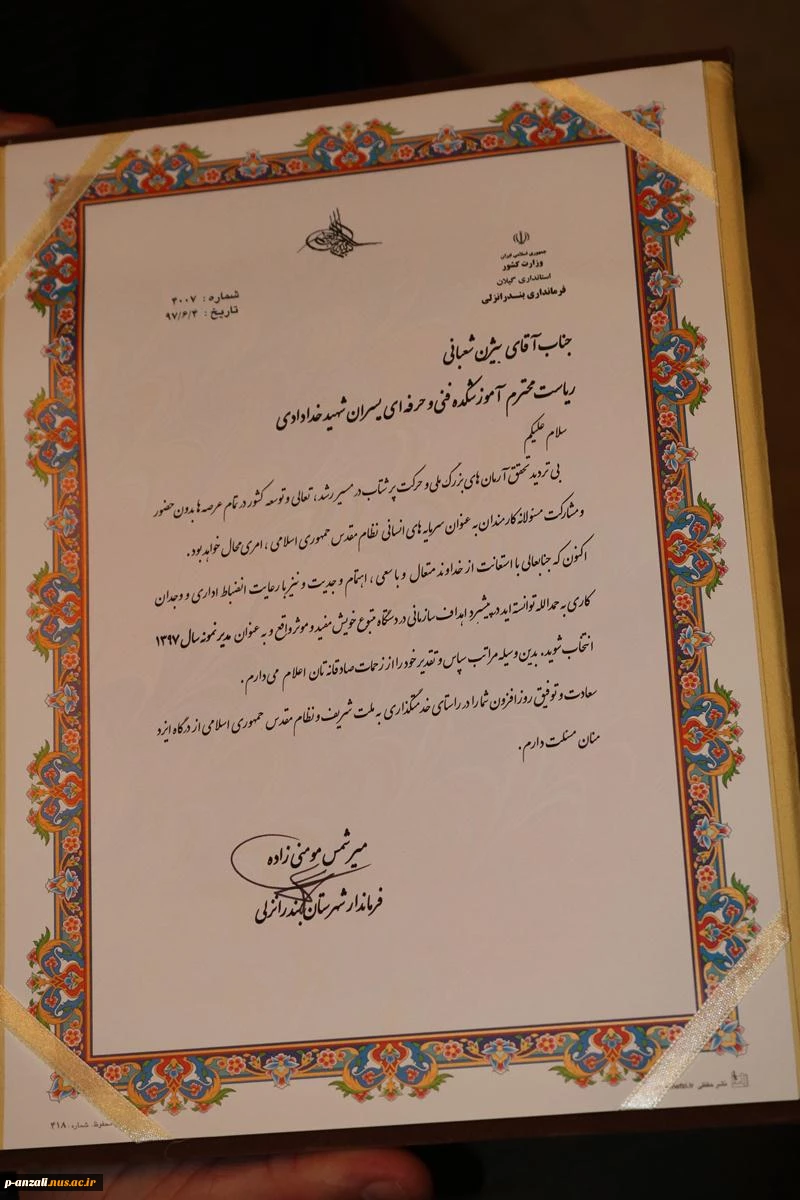 جمهوری اسلامی ایران
وزارت کشور
استانداری گیلان
فرمانداری بندرانزلی
شماره : ۴۰۰۷
تاریخ : ۹۷/۶/۴
جناب آقای بیژن شعبانی
ریاست محترم آموزشکده فنی و حرفه ای پسران شهید خدادادی
سلام علیکم
بی تردید تحقق آرمان های بزرگ ملی و حرکت پرشتاب در مسیر رشد ، تعالی و توسعه کشور در تمام عرصه ها بدون حضور
و مشارکت مسئولانه کارمندان به عنوان سرمایه های انسانی نظام مقدس جمهوری اسلامی ، امری محال خواهد بود .
اکنون که جنابعالی با استعانت از خداوند متعال و با سعی ، اهتمام و جدیت و نیز با رعایت انضباط اداری و وجدان
کاری به حمدالله توانسته اید در پیشبرد اهداف سازمانی در دستگاه متبوع خویش مفید و موثر واقع و به عنوان مدیر نمونه سال ۱۳۹۷
انتخاب شوید . بدین وسیله مراتب سپاس و تقدیر خود را از زحمات صادقانه تان اعلام می دارم .
سعادت و توفیق روزافزون شما را در راستای خدمتگذاری به ملت شریف و نظام مقدس جمهوری اسلامی از درگاه ایزد
منان مسئلت دارم .
میرشمس مومنی زاده
فرماندار شهرستان بندرانزلی
نشر حفظی
محفوظ. شماره : ۴۱۸
p-anzali.nus.ac.ir